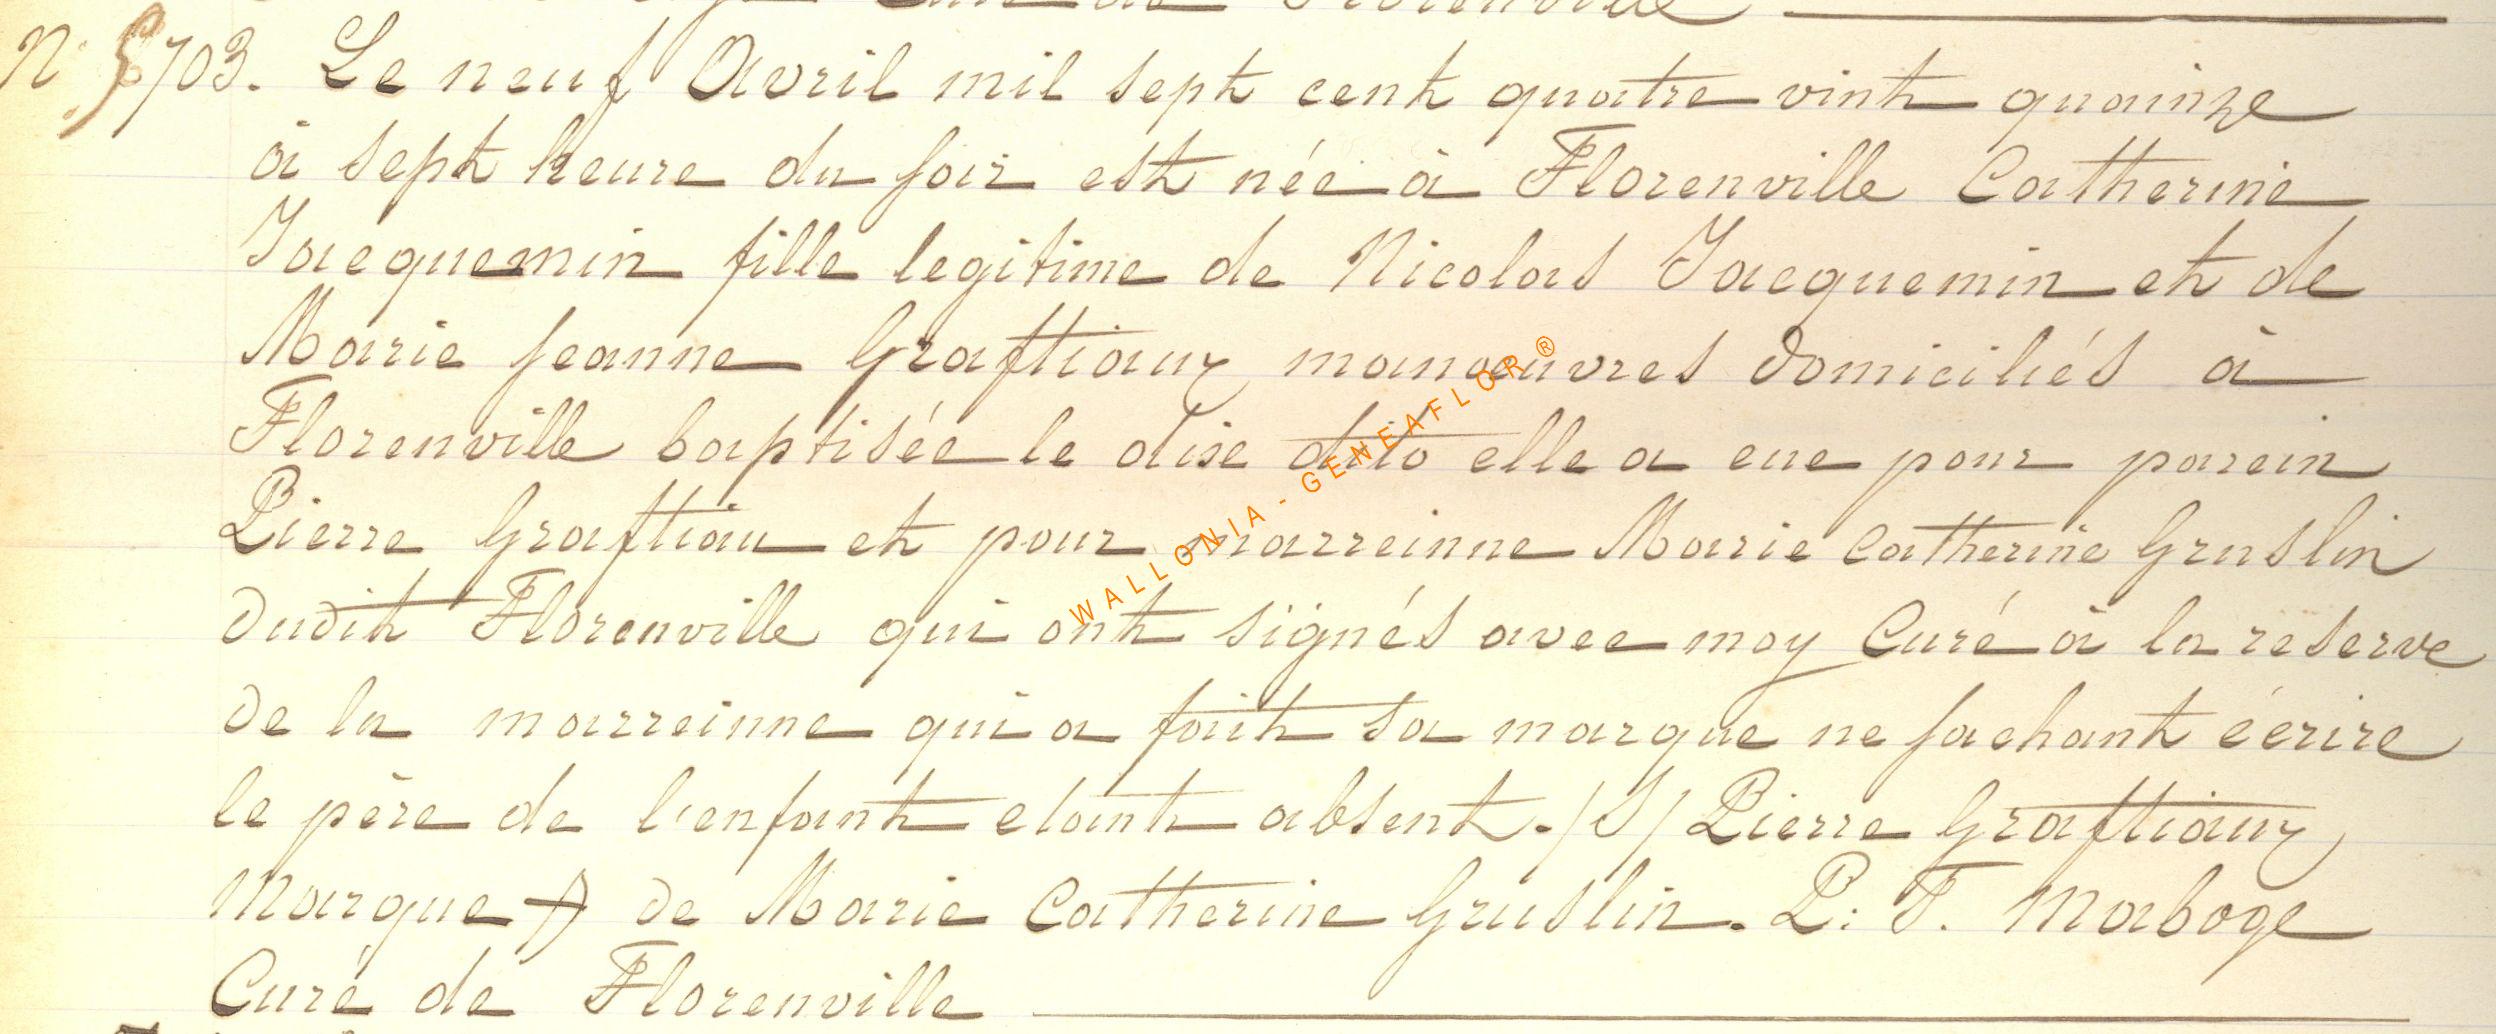 Curé de Florenville
N° 703. Le neuf Avril mil sept cent quatre vint quainze
à sept heure du soir est née à Florenville Catherine
Jacquemin fille legitime de Nicolas Jacquemin et de
Marie Jeanne Graftiaux manoeuvres domiciliés à
Florenville baptisée le dise dito elle a eue pour parein
Pierre Graftiau et pour marreinne Marie Catherine Gruslin
dudit Florenville qui ont signés avec moy Curé à la reserve
de la marreinne qui a fait sa marque ne sachant écrire
le père de l'enfant etant absent. /S/ Pierre Graftiaux
Marque + de Marie Catherine Gruslin. P: F. Maboge
Curé de Florenville
WALLONIA - GENEAFLOR ®